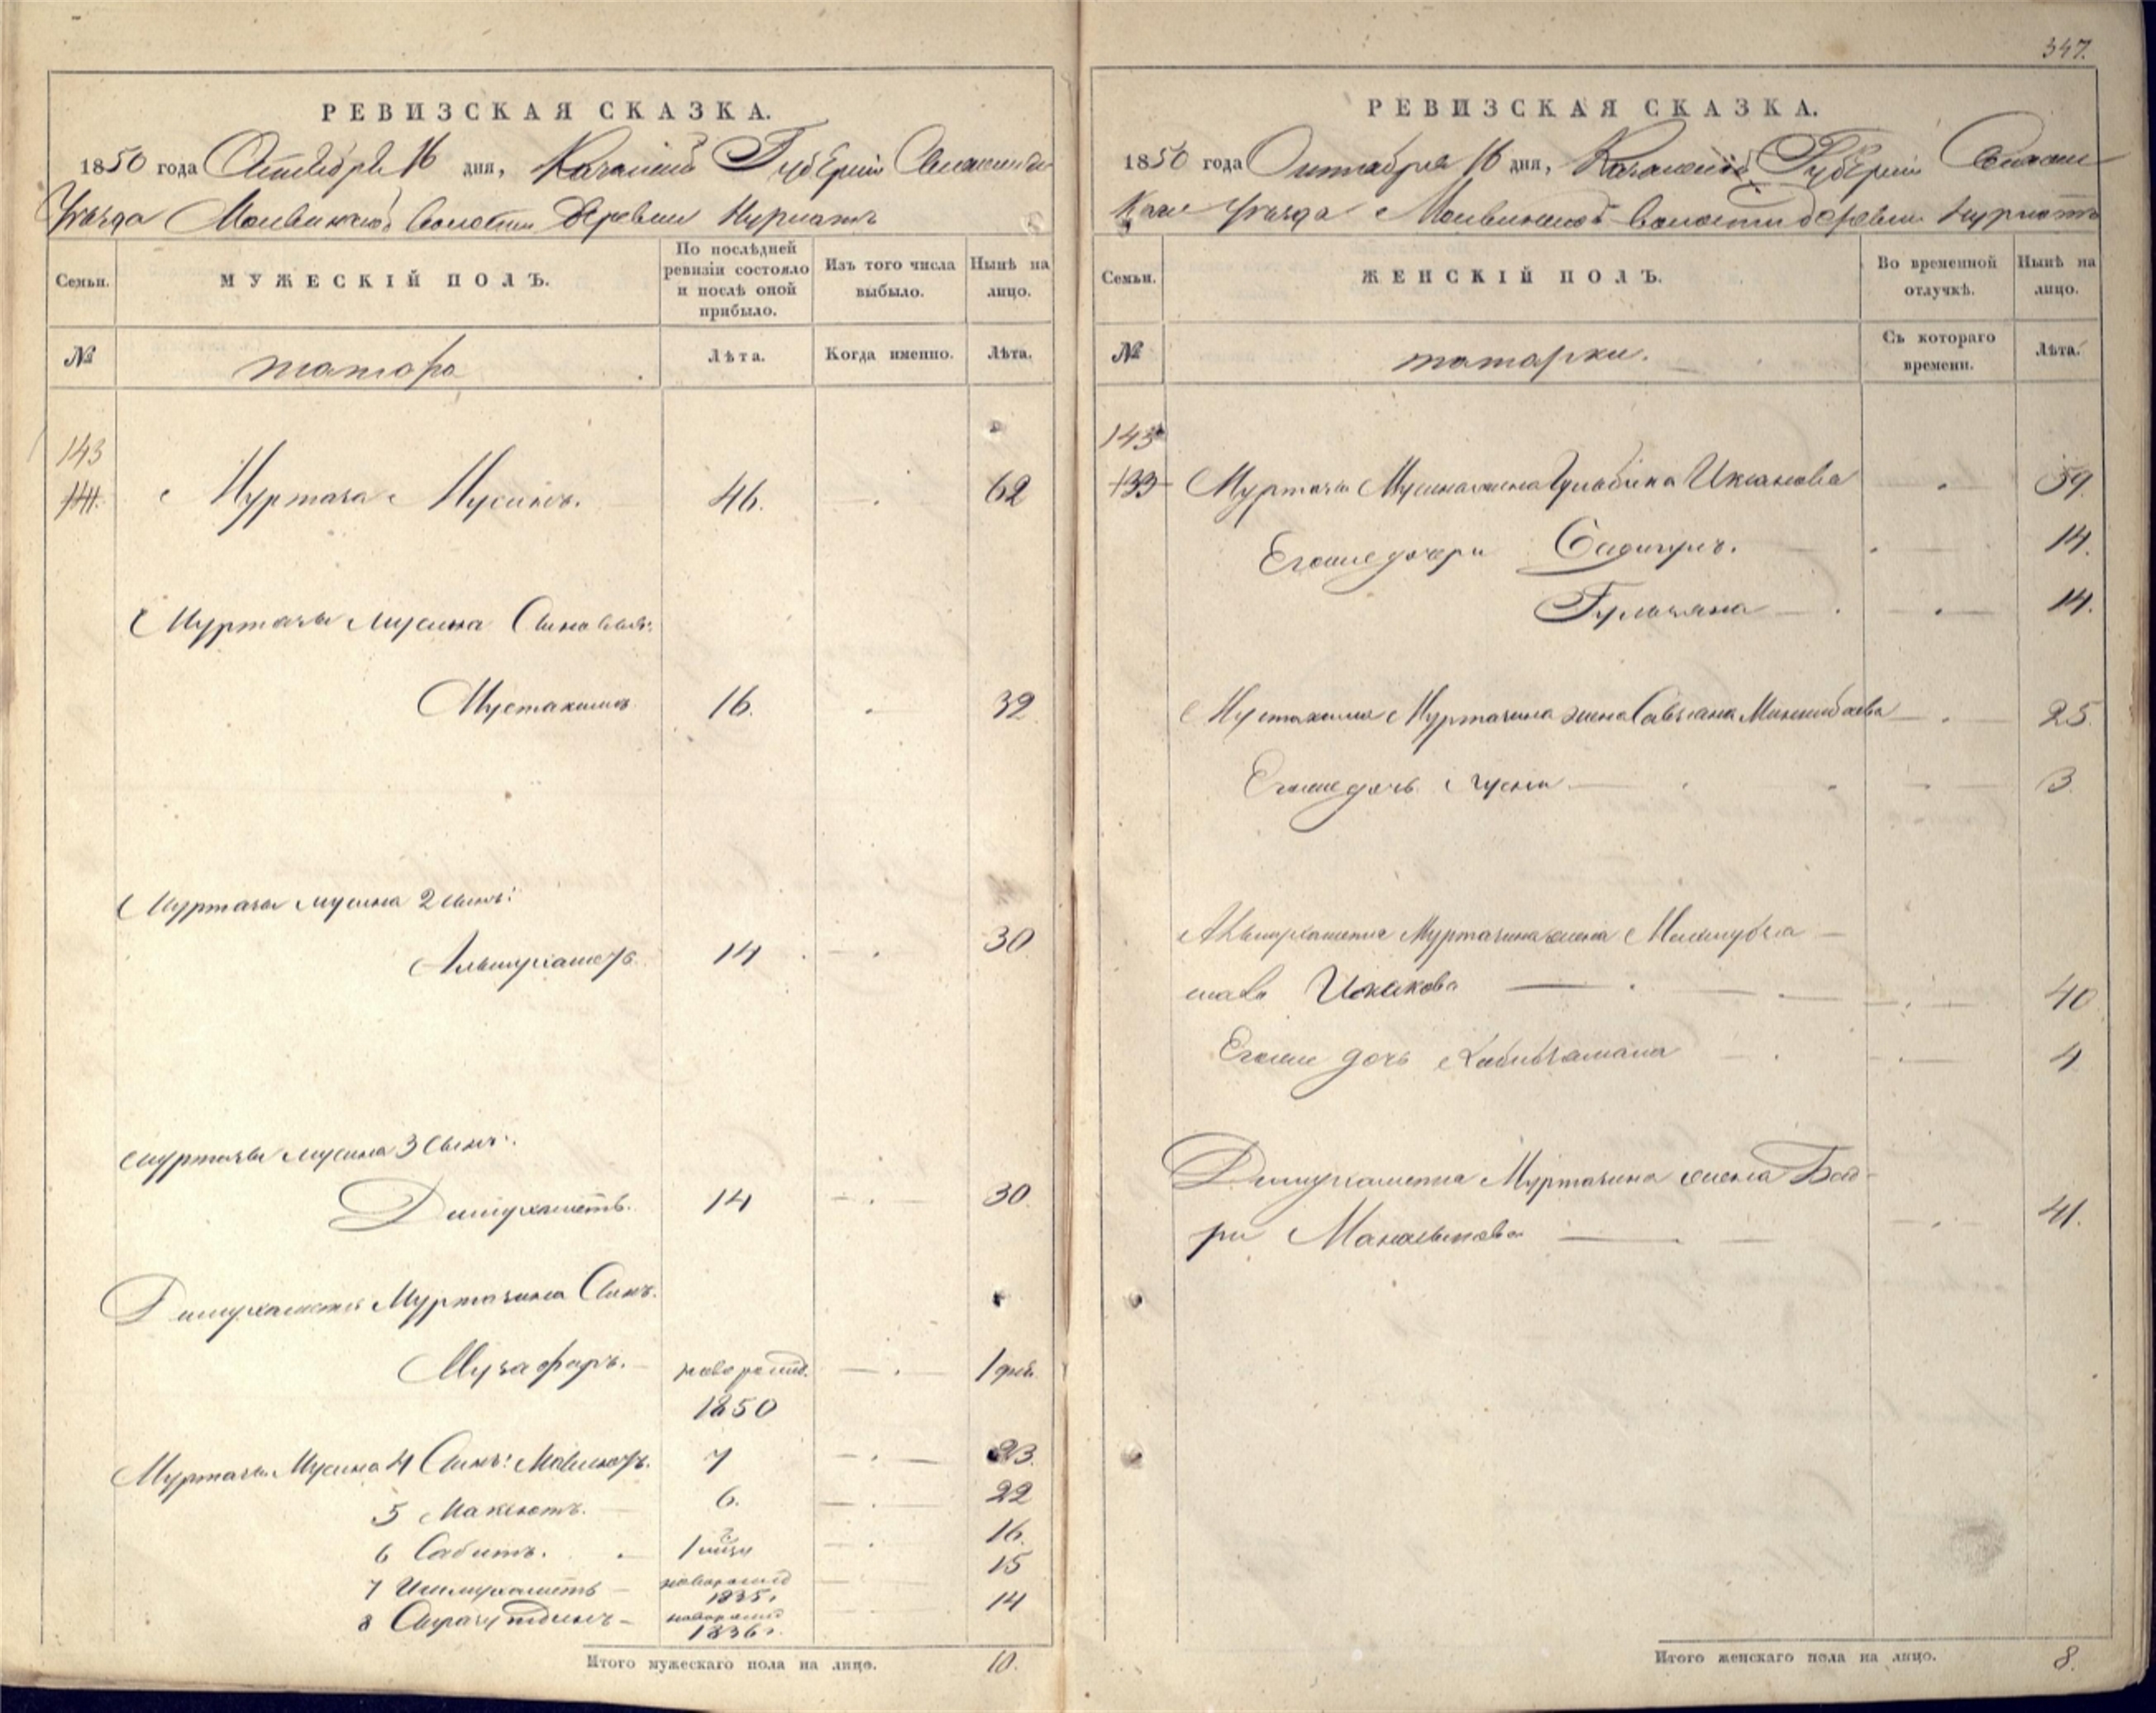 347.
РЕВИЗСКАЯ СКАЗКА.
1850 года Октября 16 дня, Казанской Губернии Спасскаго
Уезда Волости Деревни Нурлатъ
Семьи.
МУЖЕСКІЙ ПОЛЪ.
По послѣдней ревизіи состояло и послѣ оной прибыло.
Изъ того числа выбыло.
Нынѣ на лицо.
№
татара
Лѣта.
Когда именно.
Лѣта.
143
141.
Муртаза Мусинъ. 46. 62
Муртазы Мусина Сыновья:
Мустакимъ 16. 32
Муртазы Мусина 2 сынъ:
Альмухаметъ. 14 30
Муртазы Мусина 3 Сынъ:
Динмухаметъ. 14 30
Динмухаметя Муртазина Сынъ.
Музафаръ. новорожд. 1 дней
1850
Муртазы Мусина 4 Сынъ: 7 23.
5 Максютъ. 6. 22
6 Сабитъ. 1 16.
7 Ишмухаметъ новорожд 1835г 15
8 новорожд 1836г. 14
Итого мужескаго пола на лицо. 10.
РЕВИЗСКАЯ СКАЗКА.
1850 года Октября 16 дня, Казанской Губернии Спас
скаго Уезда Волости деревни Нурлатъ
Семьи.
ЖЕНСКІЙ ПОЛЪ.
Во временной отлучкѣ.
Нынѣ на лицо.
№
татарки.
Съ котораго времени.
Лѣта.
143
133
Муртазы Мусина жена Гульбика 59.
Егоже дочери 14.
Гульзяна 14.
Мустакима Муртазина жена 25.
Егоже дочь 3.
Альмухаметя Муртазина жена
Исхакова 40
Егоже дочь Хабибзамала 4
Динмухаметя Муртазина жена Бад-
ри 41.
Итого женскаго пола на лицо. 8.